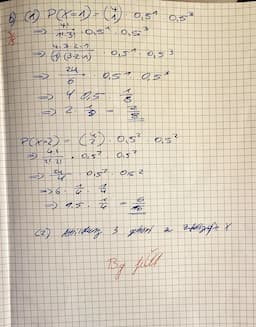 b) (1) P(X=1) = (4 1) · 0,5¹ · 0,5³
=> 4!/1!·3! · 0,5¹ · 0,5³
=> 4·3·2·1/(1)·(3·2·1) · 0,5¹ · 0,5³
=> 24/6 · 0,5¹ · 0,5³
=> 4 · 0,5 · 1/8
=> 2 · 1/8 = 2/8
P(X=2) = (4 2) · 0,5² · 0,5²
=> 4!/2!·2! · 0,5² · 0,5²
=> 24/4 · 0,5² · 0,5²
=> 6 · 1/4 · 1/4
=> 1,5 · 1/4 = 6/16
(2) Abbildung 3 gehört zu X